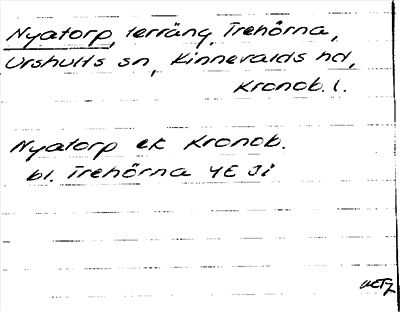 Nyatorp, terräng, Trehörna,
Urshults sn, Kinnevalds hd,
Kronob. l.
Nyatorp ek Kronob.
bl. Trehörna 4E Ji